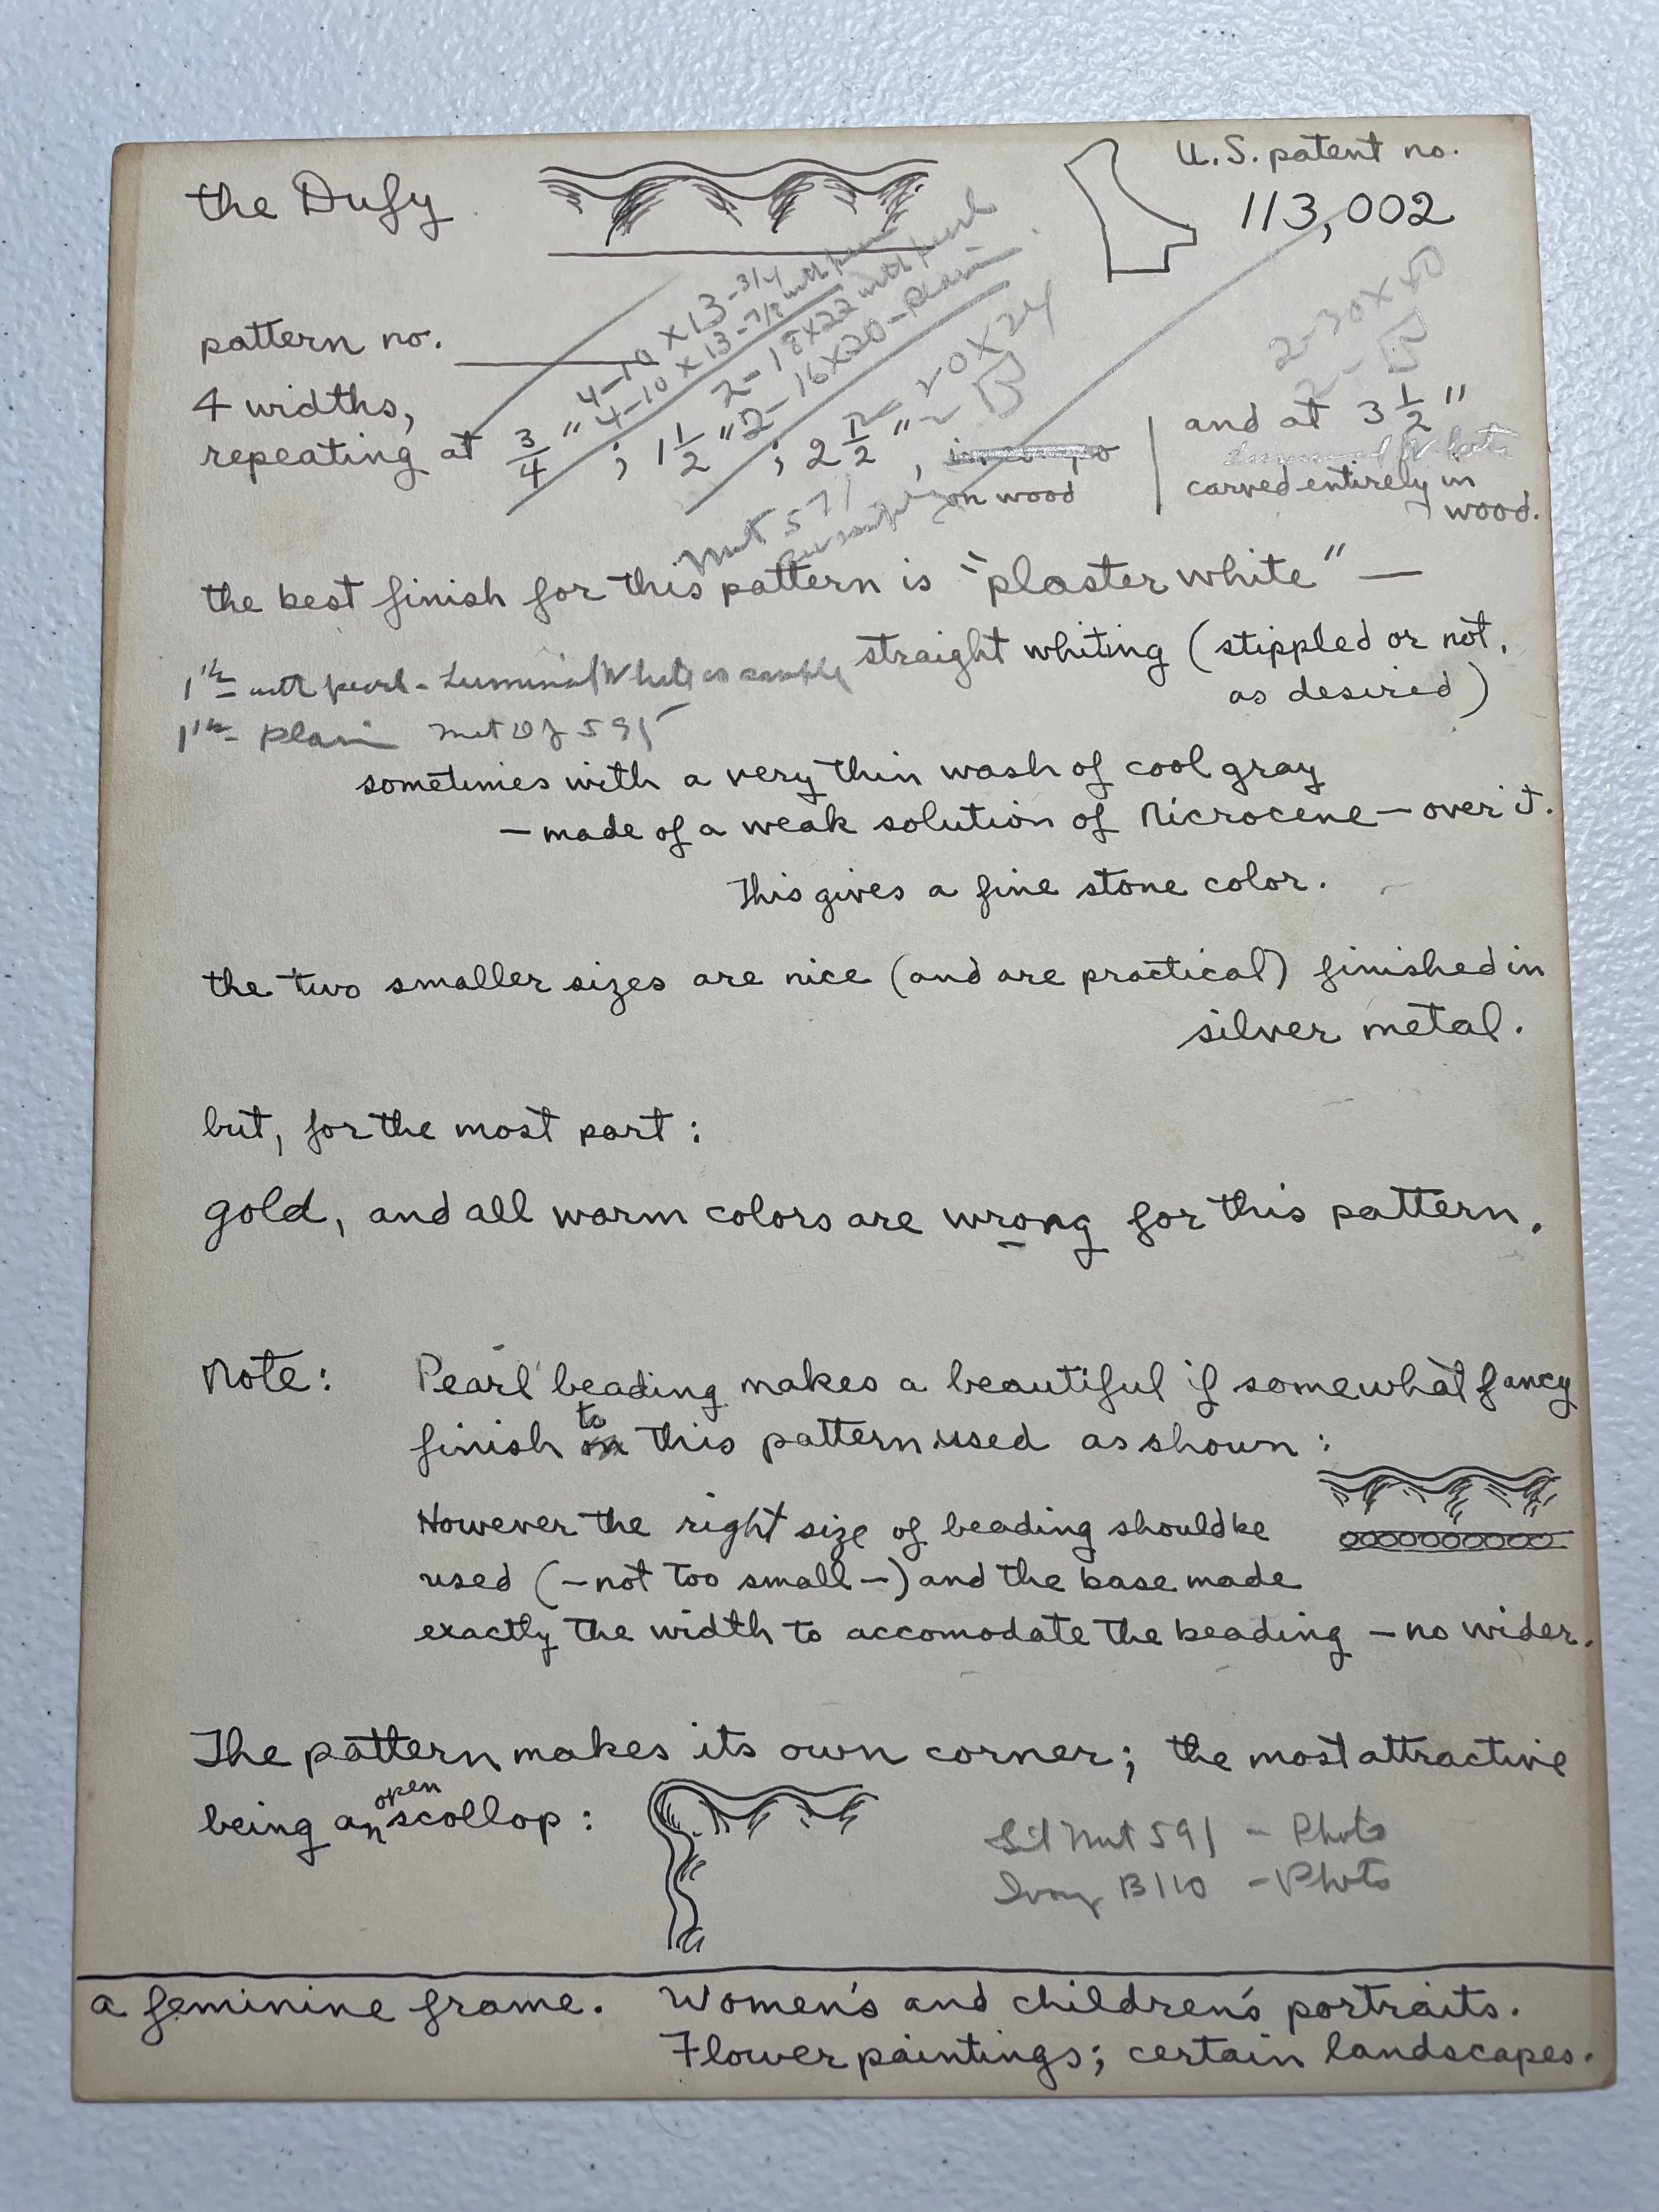 the Dufy
U.S. patent no.
113,002
pattern no.
4-10 x 13 - 3/4 with
4-10 x 13 - 7/8 with
2 - 18x22 with pearl
2 - 16x20 - plain
2 - 20 x 24
2 - 30 x 40
4 widths,
repeating at 3/4"; 1 1/2"; 2 1/2",
on wood
and at 3 1/2"
carved entirely in
wood.
the best finish for this pattern is "plaster white" —
straight whiting (stippled or not,
as desired)
with pearl - Luminal White as sample
plain
sometimes with a very thin wash of cool gray
— made of a weak solution of Nicrocene — over it.
This gives a fine stone color.
the two smaller sizes are nice (and are practical) finished in
silver metal.
but, for the most part:
gold, and all warm colors are wrong for this pattern.
Note:
Pearl beading makes a beautiful if somewhat fancy
finish to this pattern used as shown:
However the right size of beading should be
used (—not too small—) and the base made
exactly the width to accomodate the beading — no wider.
The pattern makes its own corner; the most attractive
being an open scollop:
591 - Photo
Ivory B110 - Photo
a feminine frame. Women's and children's portraits.
Flower paintings; certain landscapes.